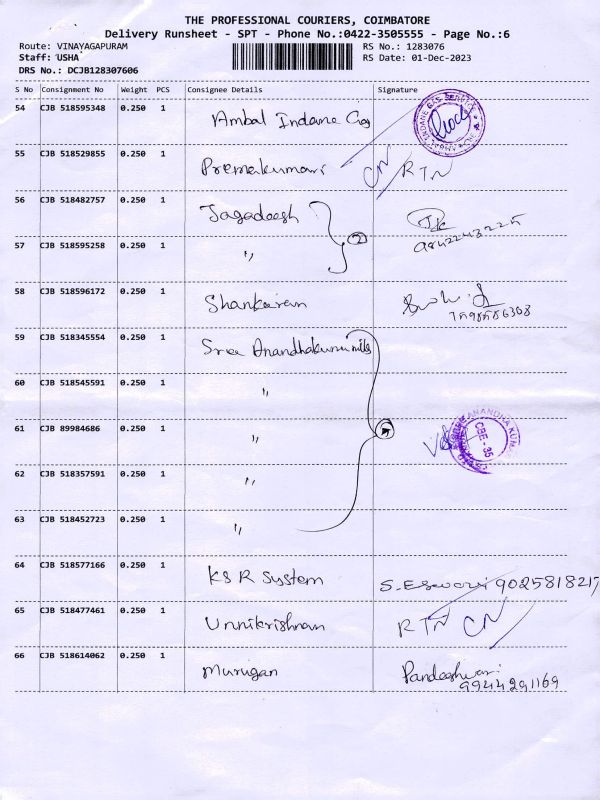 THE PROFESSIONAL COURIERS, COIMBATORE
Delivery Runsheet - SPT - Phone No.:0422-3505555 - Page No.:6
Route: VINAYAGAPURAM RS No.: 1283076
Staff: USHA RS Date: 01-Dec-2023
DRS No.: DCJB128307606
S No Consignment No Weight PCS Consignee Details Signature
54 CJB 518595348 0.250 1 Ambal Indane Gas
55 CJB 518529855 0.250 1 Premakumari CN RTN
56 CJB 518482757 0.250 1 Jagadeesh
57 CJB 518595258 0.250 1 " 2 9842243225
58 CJB 518596172 0.250 1 Shankaran
59 CJB 518345554 0.250 1 Sree Anandhakumar mills
60 CJB 518545591 0.250 1 "
61 CJB 89984686 0.250 1 " CBE - 35
62 CJB 518357591 0.250 1 "
63 CJB 518452723 0.250 1 "
64 CJB 518577166 0.250 1 KSR System S. Eswari 9025818217
65 CJB 518477461 0.250 1 Unnikrishnan RTN CN
66 CJB 518614062 0.250 1 Murugan Pandeshwari
9944291169